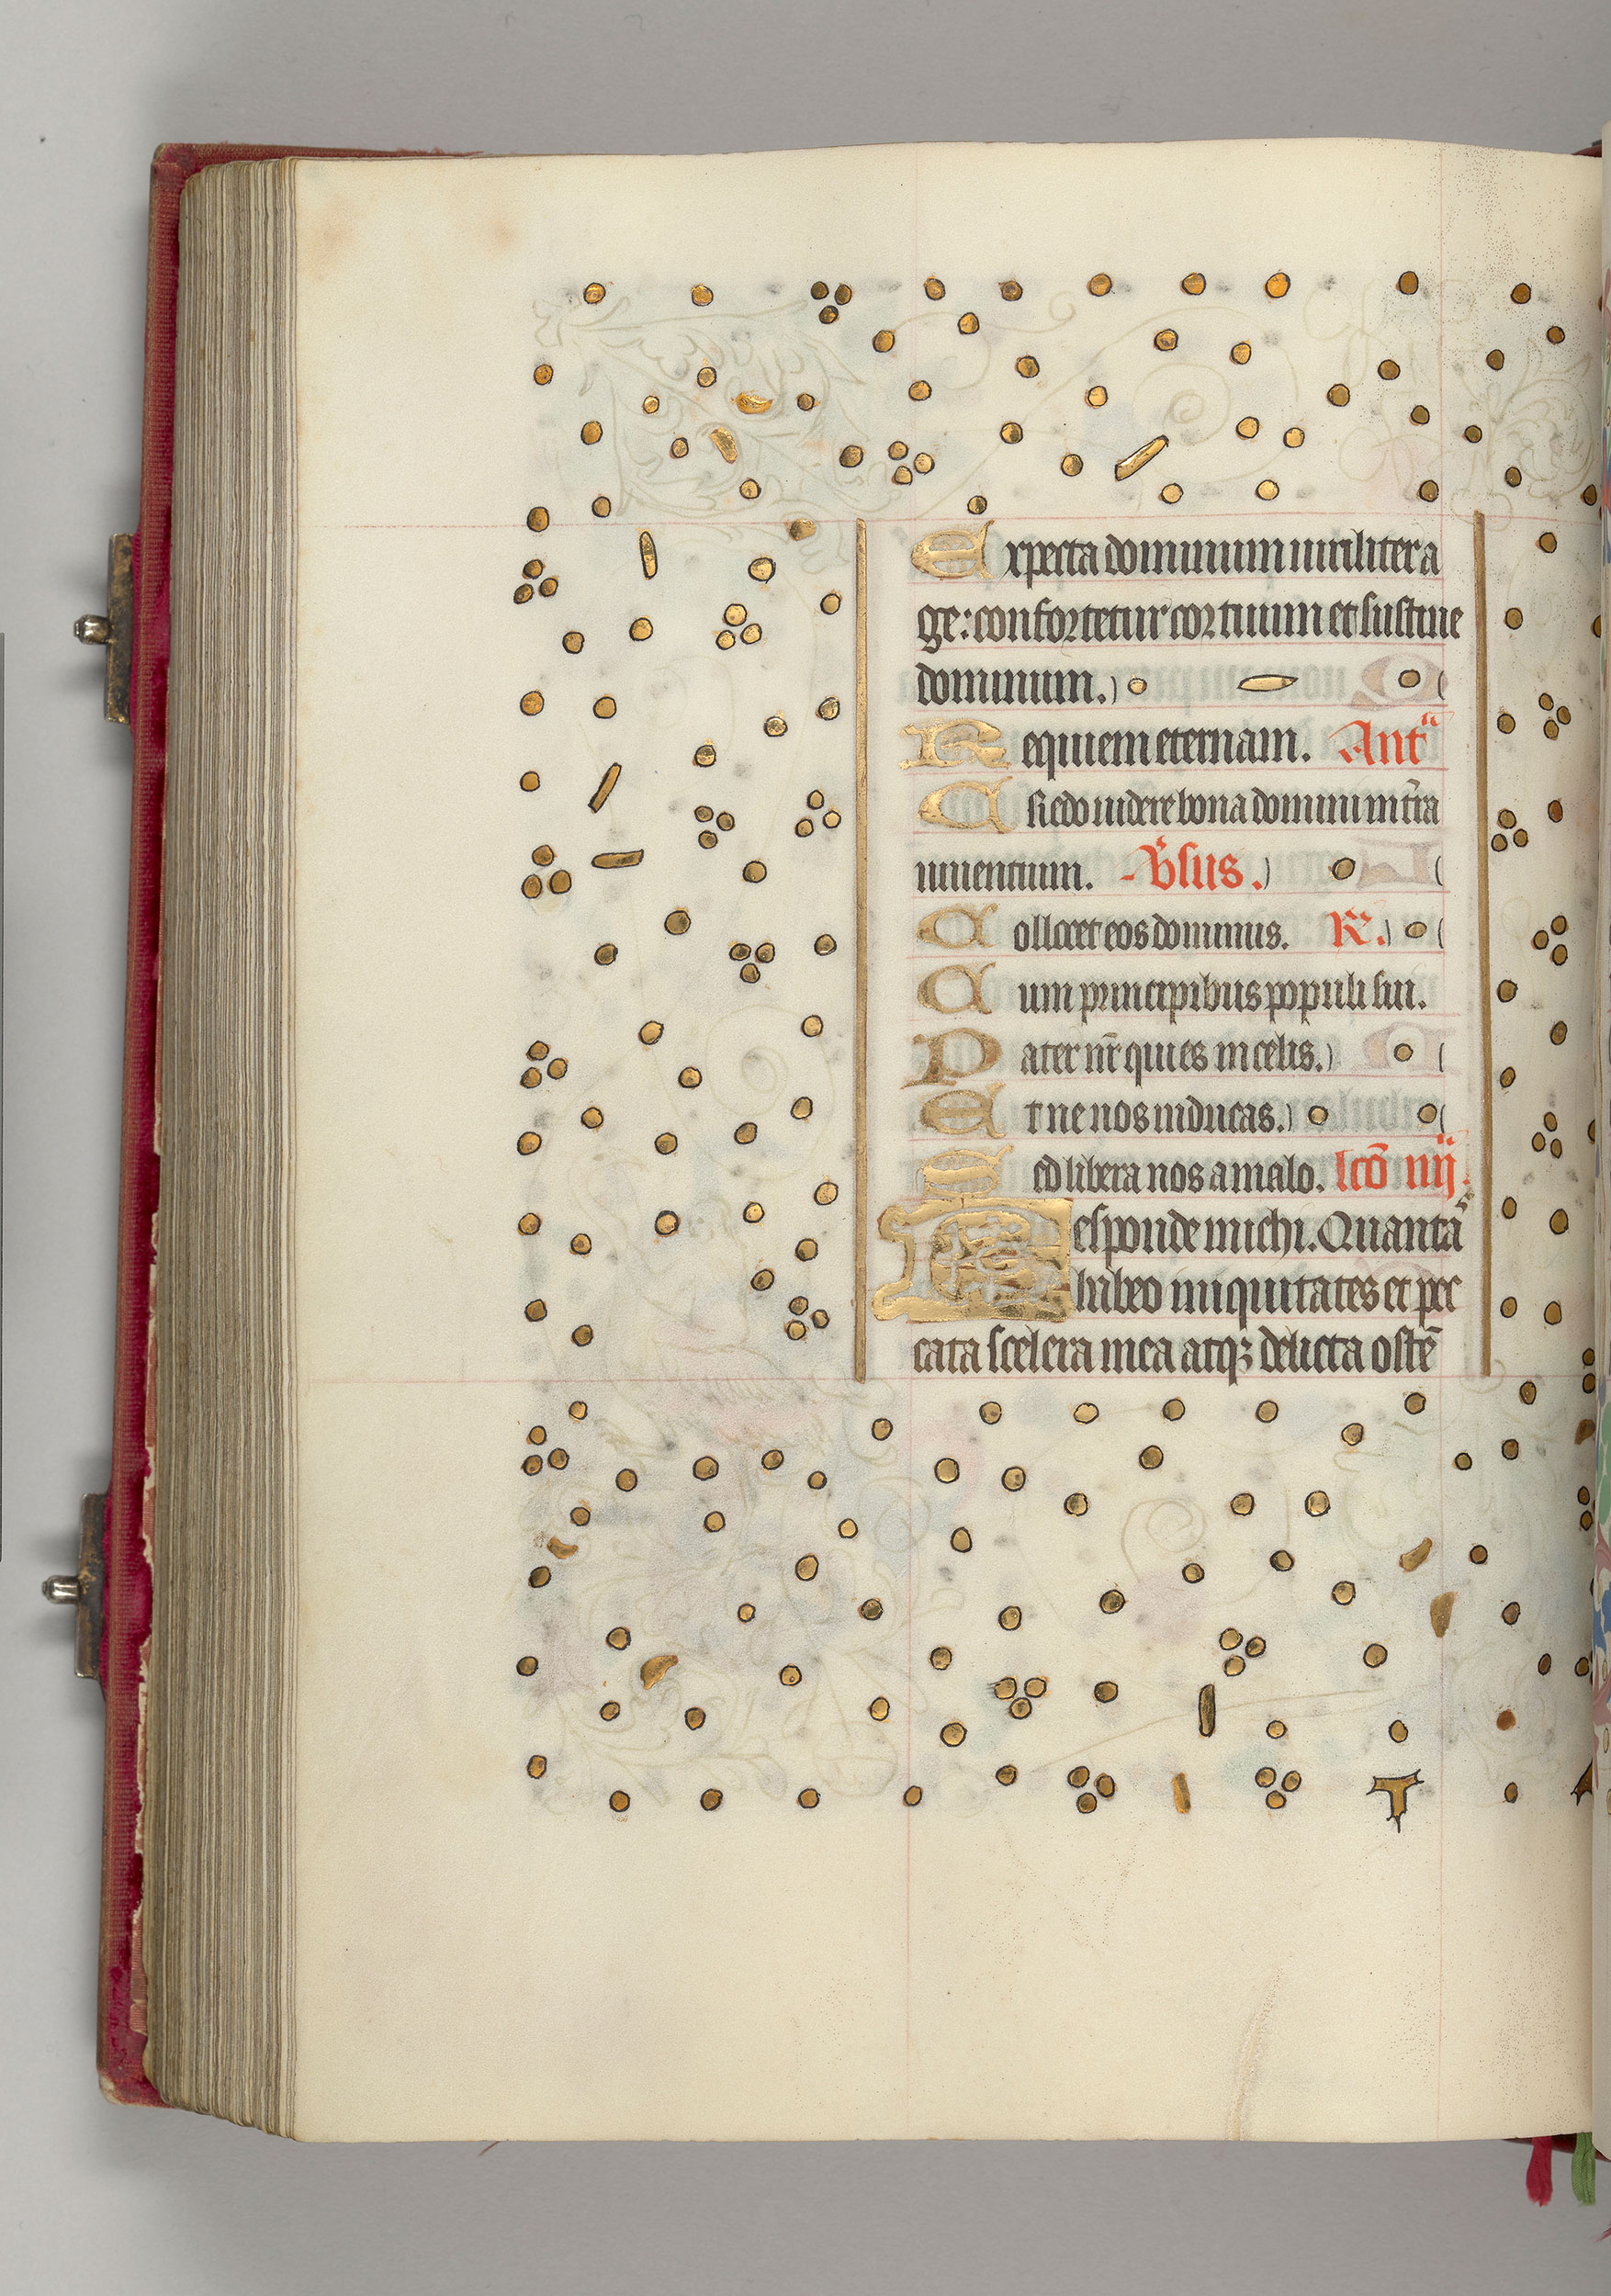 Expecta dominum uiriliter a
ge: confortetur cor tuum et sustine
dominum.
Requiem eternam. Ant̃ᵃ
Credo uidere bona domini in tr̃a
uiuentium. v̾sus.
Collocet eos dominus. R̃.
Cum principibus populi sui.
Pater nr̃ qui es in celis.
Et ne nos inducas.
Sed libera nos a malo. lc̃o iiij.
Responde michi. Quantã
habeo iniquitates et pec
cata scelera mea atqꝫ delicta ostẽ